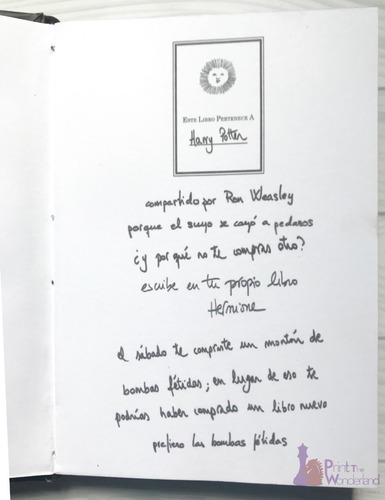 ESTE LIBRO PERTENECE A
Harry Potter
compartido por Ron Weasley
porque el suyo se cayó a pedazos
¿y por qué no te compras otro?
escribe en tu propio libro
Hermione
el sábado te compraste un montón de
bombas fétidas; en lugar de eso te
podrías haber comprado un libro nuevo
prefiero las bombas fétidas
Print in
Wonderland